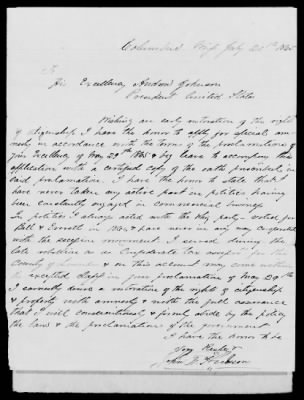 Columbus Miss July 20th 1865
To
His Excellency Andrew Johnson
President United States
Wishing an early restoration of the rights
of citizenship, I have the honor to apply for special am-
nesty in accordance with the terms of the proclamation of
your Excellency of May 29th 1865 & beg leave to accompany this
application with a certified copy of the oath prescribed in
said proclamation. I have the honor to state that I
have never taken any active part in politics having
been constantly engaged in commercial
In politics I always acted with the Whig party - voted for
Bell & Everett in 1860, & gave never in any way
with the secession movement. I served during the
late rebellion as a Confederate tax for the
County of & on this account may come within
excepted class in your proclamation of May 29th
I earnestly desire a restoration of the rights of citizenship
& property with amnesty & with the full assurance
that I will conscientiously & firmly abide by the policy
the laws & the proclamations of the government
I have the honor to be
Very Respt